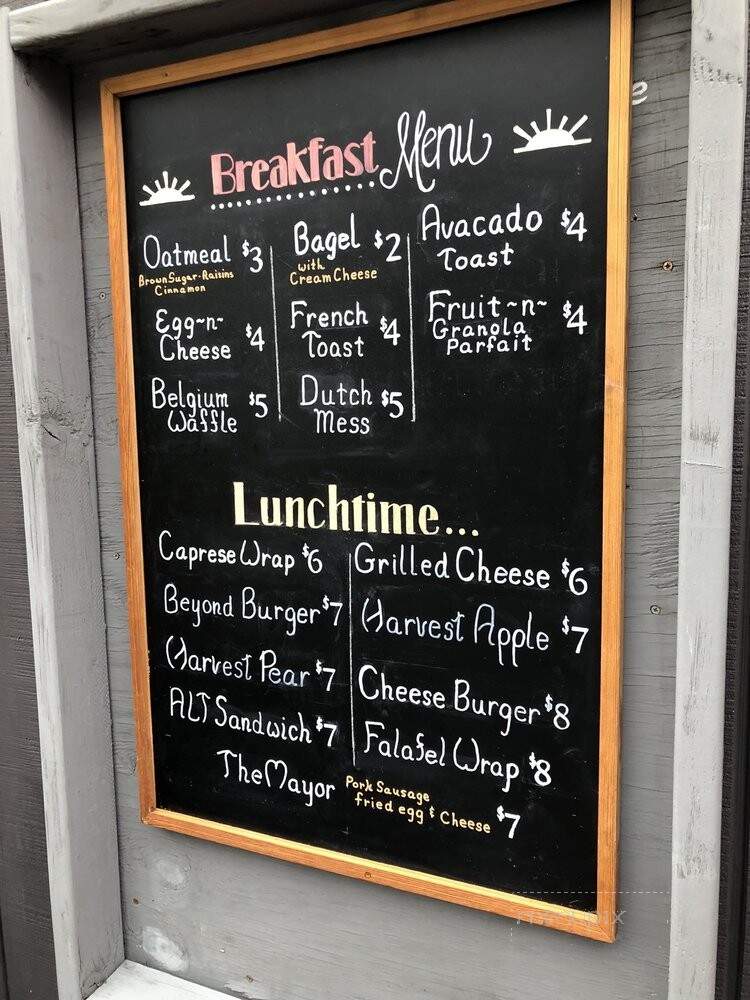 Breakfast Menu
Oatmeal $3
Brown Sugar-Raisins
Cinnamon
Egg~n~
Cheese $4
Belgium
Waffle $5
Bagel $2
with
Cream Cheese
French
Toast $4
Dutch
Mess $5
Avacado $4
Toast
Fruit~n~ $4
Granola
Parfait
Lunchtime...
Caprese Wrap $6
Beyond Burger $7
Harvest Pear $7
ALT Sandwich $7
Grilled Cheese $6
Harvest Apple $7
Cheese Burger $8
Falafel Wrap $8
The Mayor Pork Sausage
fried egg & Cheese $7
e